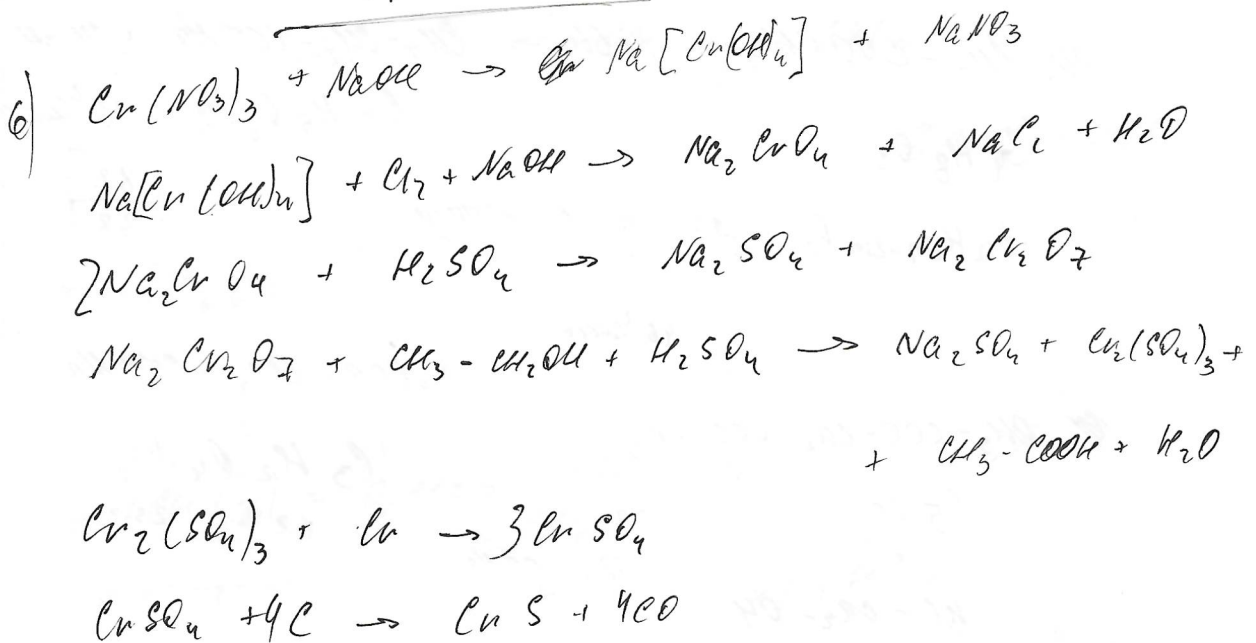 6) Cr(NO₃)₃ + NaOH → Na[Cr(OH)₄] + NaNO₃
Na[Cr(OH)₄] + Cl₂ + NaOH → Na₂CrO₄ + NaCl + H₂O
2Na₂CrO₄ + H₂SO₄ → Na₂SO₄ + Na₂Cr₂O₇
Na₂Cr₂O₇ + CH₃-CH₂OH + H₂SO₄ → Na₂SO₄ + Cr₂(SO₄)₃ +
+ CH₃-COOH + H₂O
Cr₂(SO₄)₃ + Cr → 3CrSO₄
CrSO₄ + 4C → CrS + 4CO